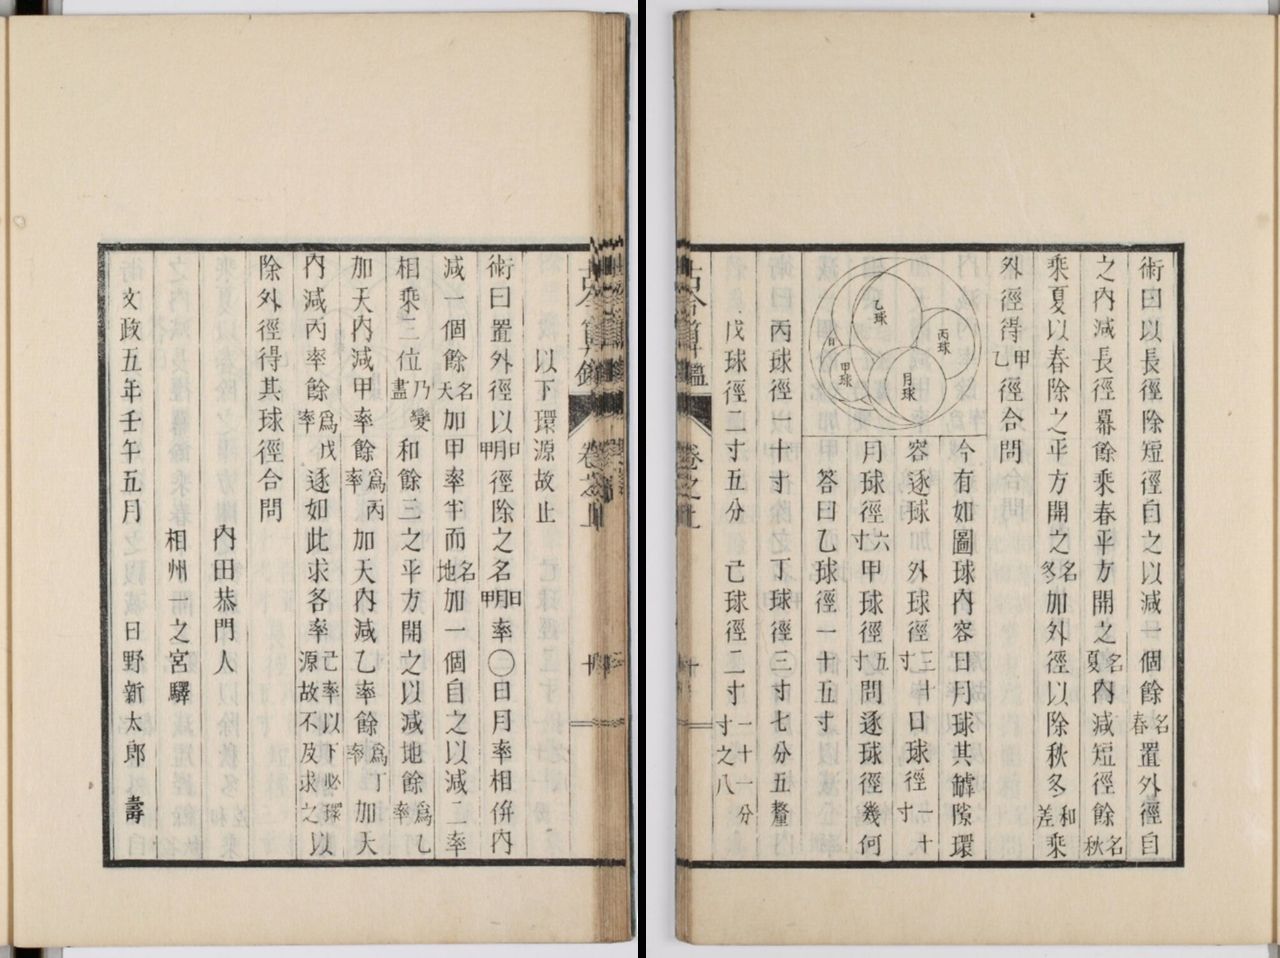 術曰以長徑除短徑自之以減一個餘名春置外徑自
之内減長徑冪餘乘春平方開之名夏内減短徑餘名秋
乘夏以春除之平方開之名冬加外徑以除秋冬和差乘
外徑得甲乙徑合問
乙球
丙球
日
甲球
月球
今有如圖球内容日月球其罅隙環
容逐球外球徑三十寸日球徑一十寸
月球徑六寸甲球徑五寸問逐球徑幾何
答曰乙球徑一十五寸
丙球徑一十寸 丁球徑三寸七分五釐
戊球徑二寸五分 己球徑二寸一十一分寸之八
古今算鑑
卷之上
十
以下環源故止
術曰置外徑以日月甲徑除之名日月甲率〇日月率相併内
減一個餘名天加甲率半而名地加一個自之以減二率
相乘三位乃變盡和餘三之平方開之以減地餘爲乙率
加天内減甲率餘爲丙率加天内減乙率餘爲丁率加天
内減丙率餘爲戊率逐如此求各率己率以下必環源故不及求之以
除外徑得其球徑合問
内田恭門人
相州一之宮驛
文政五年壬午五月 日野新太郎 壽